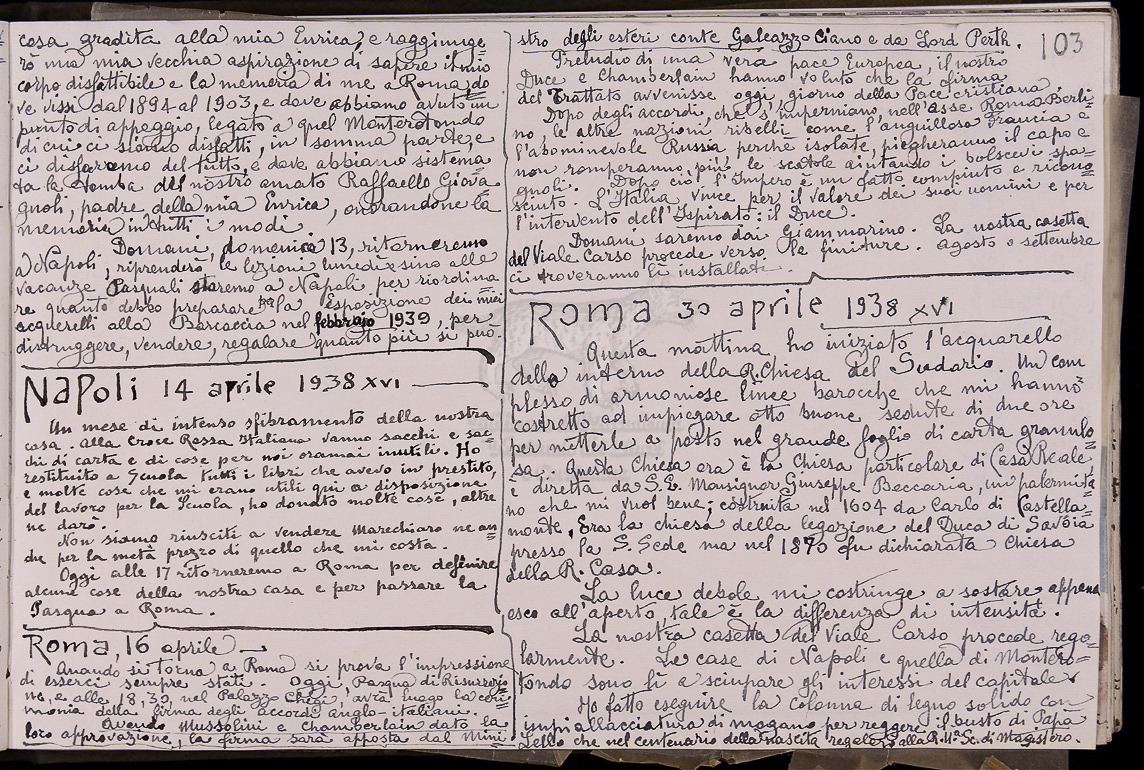 cosa gradita alla mia Enrica, e raggiunge=
rò mia mia vecchia aspirazione di sapere il mio
corpo disfattibile e la memoria di me a Roma, do=
ve vissi dal 1894 al 1903, e dove abbiamo avuto un
punto di appoggio, legato a quel Monterotondo
di cui ci siamo disfatti, in somma parte, e
ci disfaremo del tutto, e dove abbiamo sistema
ta la tomba del nostro amato Raffaello Giova=
gnoli, padre della mia Enrica, onorandone la
memoria in tutti i modi.
Domani, domenica 13, ritorneremo
a Napoli, riprenderò le lezioni lunedì e sino alle
vacanze Pasquali staremo a Napoli per riordina
re quanto debbo preparare la Esposizione dei miei
acquerelli alla Barcaccia nel febbraio 1939, per
distruggere, vendere, regalare quanto più si può.
Napoli 14 aprile 1938 XVI
Un mese di intenso sfibramento della nostra
casa. alla Croce Rossa Italiana vanno sacchi e sac=
chi di carta e di cose per noi oramai inutili. Ho
restituito a Scuola tutti i libri che avevo in prestito,
e molte cose che mi erano utili qui a disposizione
del lavoro per la Scuola, ho donato molte cose, altre
ne darò.
Non siamo riusciti a vendere Marechiaro ne an=
che per la metà prezzo di quello che mi costa.
Oggi alle 17 ritorneremo a Roma per definire
alcune cose della nostra casa e per passare la
Pasqua a Roma.
Roma, 16 aprile
Quando si torna a Roma si prova l'impressione
di esserci sempre stati. Oggi, Pasqua di Risurrezio
ne, e alle 18,30 nel Palazzo Chigi, avrà luogo la ceri=
monia della firma degli accordi anglo-italiani.
Avendo Mussolini e Chamberlain dato la
loro approvazione, la firma sarà apposta dal Mini=
103
stro degli esteri conte Galeazzo Ciano e da Lord Perth.
Preludio di una vera pace Europea, il nostro
Duce e Chamberlain hanno voluto che la firma
del Trattato avvenisse oggi, giorno della Pace cristiana
Dopo degli accordi, che s'imperniano, nell'asse Roma Berli=
no, le altre nazioni ribelli come l'anguillosa Francia e
l'abominevole Russia perchè isolate, piegheranno il capo e
non romperanno più le scatole aiutando i bolscevi spa=
gnoli. Dopo ciò l'Impero è un fatto compiuto e ricono=
sciuto. L'Italia vince per il valore dei suoi uomini e per
l'intervento dell'Ispirato: il Duce.
Domani saremo dai Giammarino. La nostra casetta
del Viale Carso procede verso le finiture. agosto o settembre
ci troveranno lì installati.
Roma 30 aprile 1938 XVI
Questa mattina ho iniziato l'acquarello
dello interno della R. Chiesa del Sudario. Un com
plesso di armoniose linee barocche che mi hanno
costretto ad impiegare otto buone sedute di due ore
per metterle a posto nel grande foglio di carta granulo
sa. Questa Chiesa ora è la Chiesa particolare di Casa Reale
è diretta da S.E. Monsignor Giuseppe Beccaria, un palermita
no che mi vuol bene; costruita nel 1604 da Carlo di Castella=
monte. Era la chiesa della legazione del Duca di Savoia
presso la S. Sede ma nel 1870 fu dichiarata Chiesa
della R. Casa.
La luce debole mi costringe a sostare appena
esco all'aperto tale è la differenza di intensità.
La nostra casetta del Viale Carso procede rego=
larmente. Le case di Napoli e quella di Montero=
tondo sono lì a sciupare gli interessi del capitale.
Ho fatto eseguire la colonna di legno solido con
impiallacciatura di mogano per reggere il busto di Papa
Lello che nel centenario della nascita regalerò alla R. Sc. di Magistero.